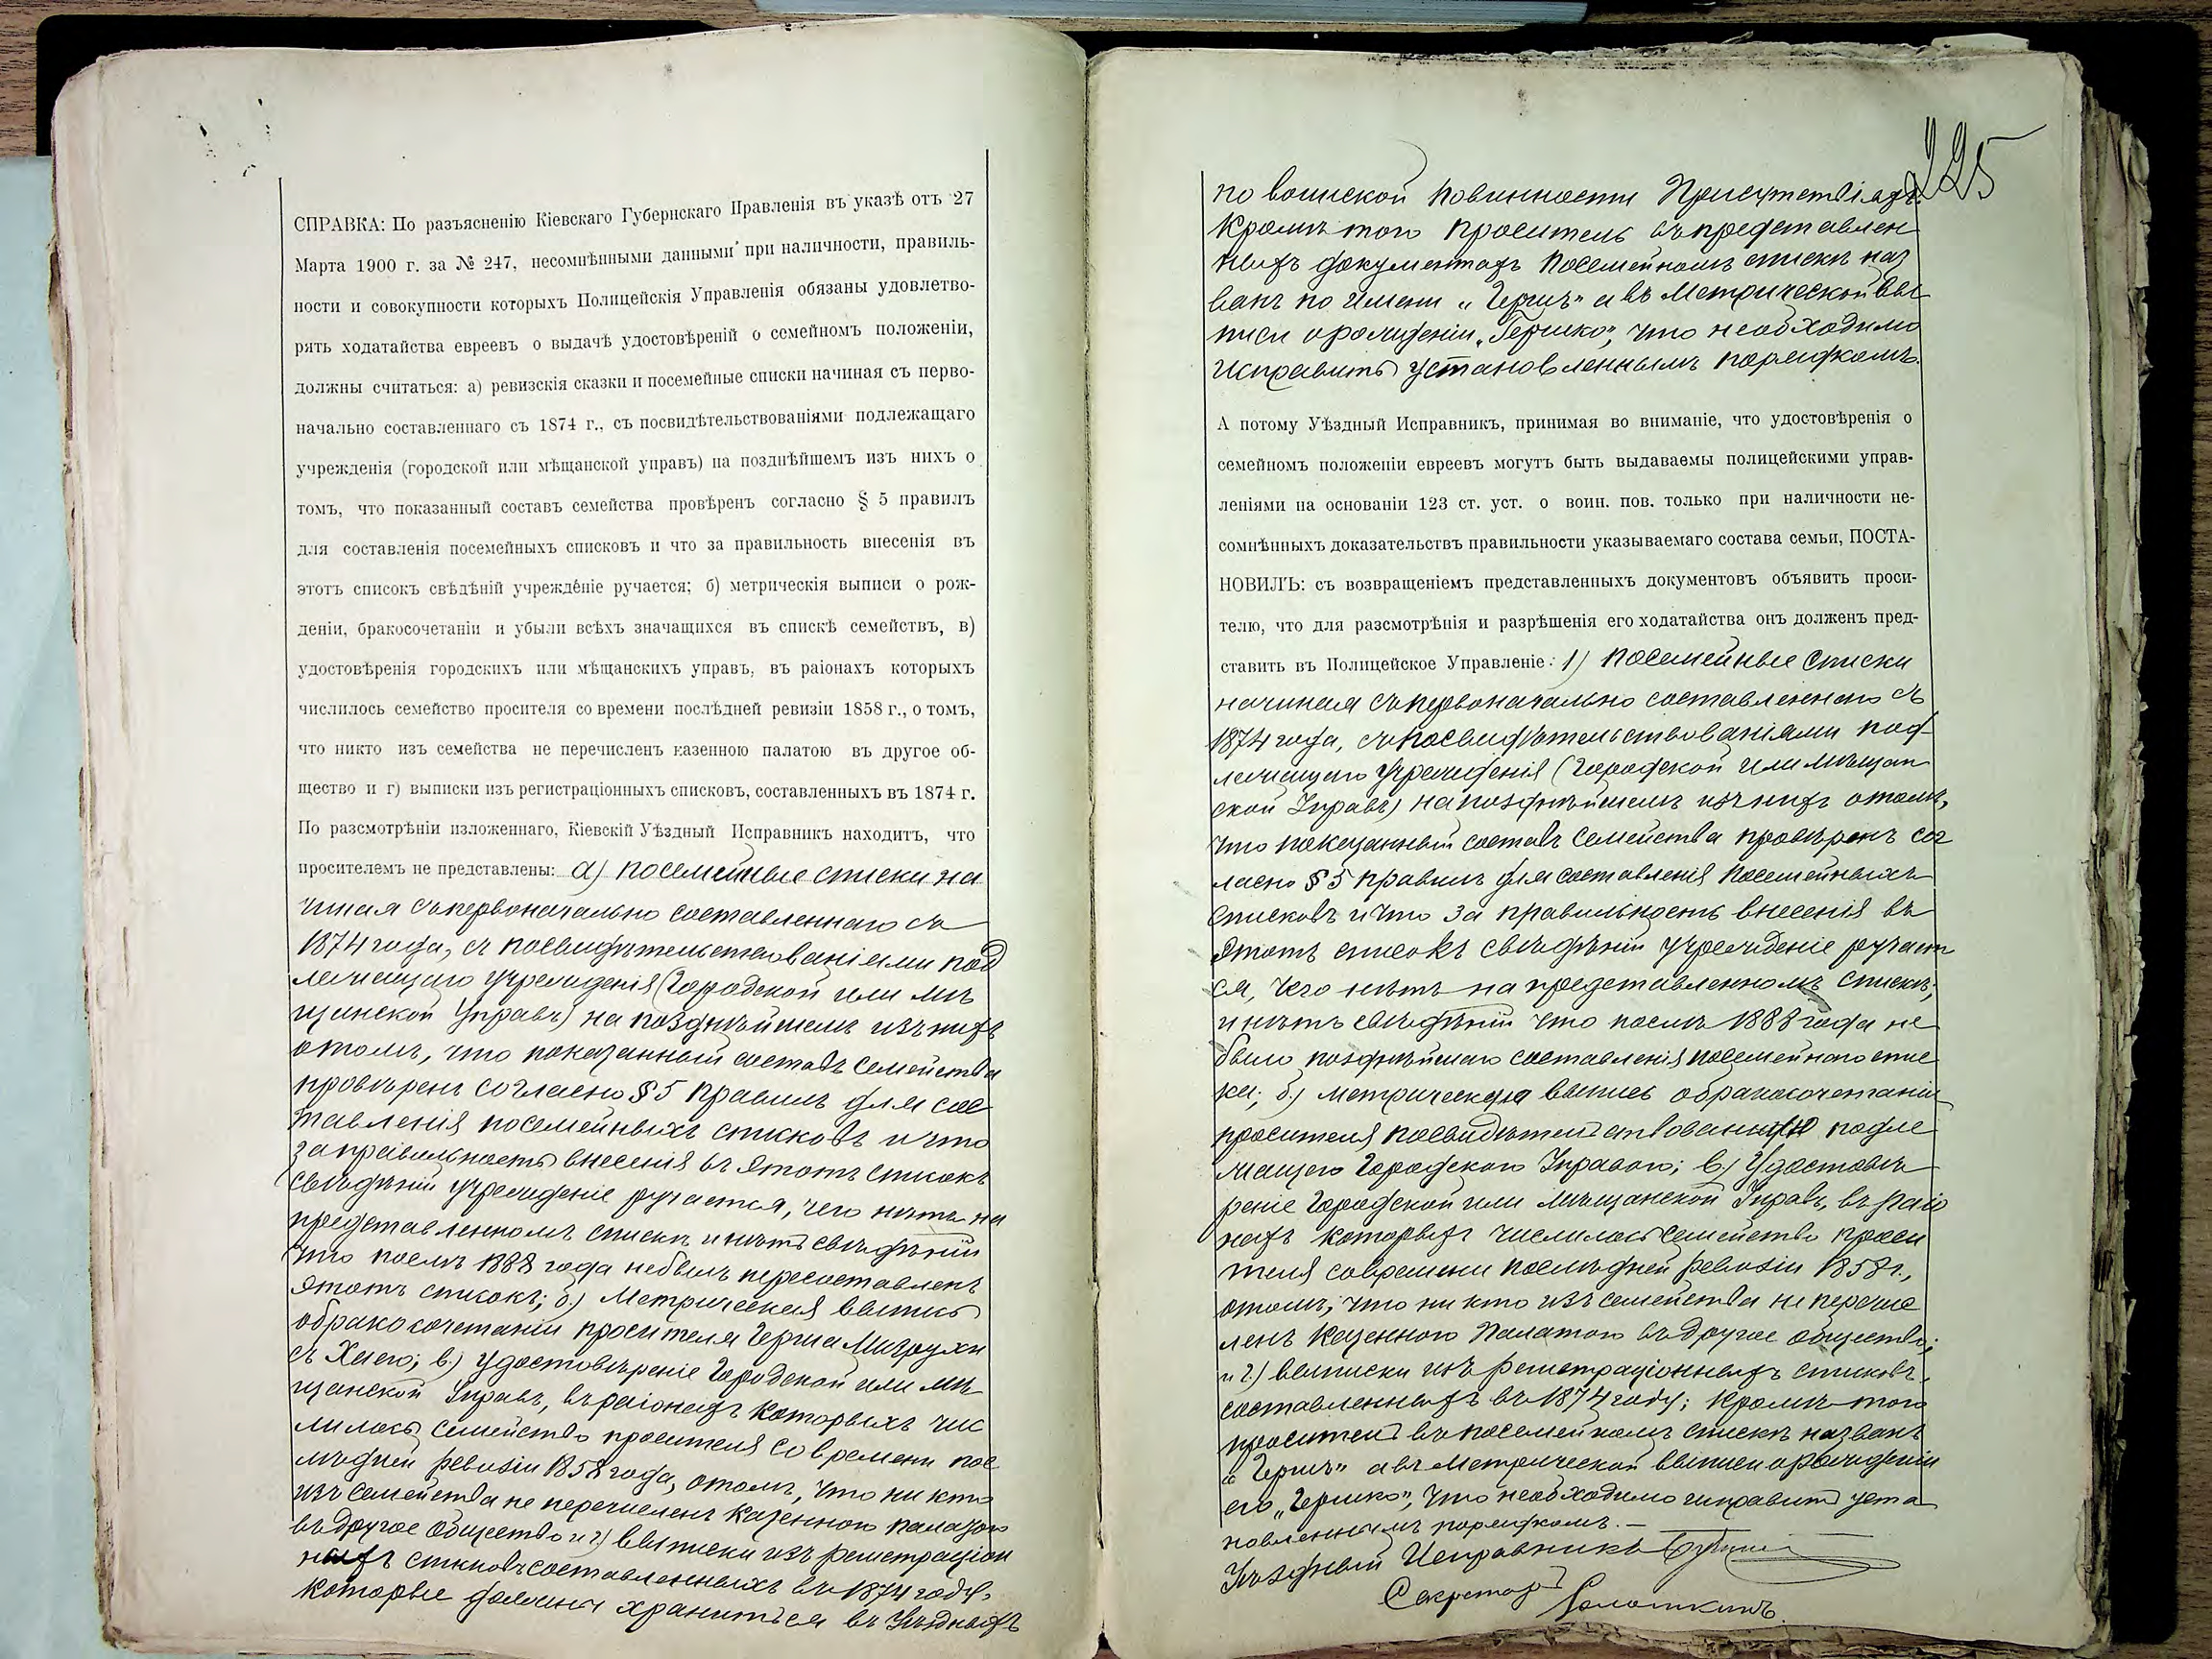 СПРАВКА: По разъясненію Кіевскаго Губернскаго Правленія въ указѣ отъ 27
Марта 1900 г. за № 247, несомнѣнными данными при наличности, правиль-
ности и совокупности которыхъ Полицейскія Управленія обязаны удовлетво-
рять ходатайства евреевъ о выдачѣ удостовѣреній о семейномъ положеніи,
должны считаться: а) ревизскія сказки и посемейные списки начиная съ перво-
начально составленнаго съ 1874 г., съ посвидѣтельствованіями подлежащаго
учрежденія (городской или мѣщанской управъ) на позднѣйшемъ изъ нихъ о
томъ, что показанный составъ семейства провѣренъ согласно § 5 правилъ
для составленія посемейныхъ списковъ и что за правильность внесенія въ
этотъ списокъ свѣдѣній учрежденіе ручается; б) метрическія выписи о рож-
деніи, бракосочетаніи и убыли всѣхъ значащихся въ спискѣ семействъ, в)
удостовѣренія городскихъ или мѣщанскихъ управъ, въ раіонахъ которыхъ
числилось семейство просителя со времени послѣдней ревизіи 1858 г., о томъ,
что никто изъ семейства не перечисленъ казенною палатою въ другое об-
щество и г) выписки изъ регистраціонныхъ списковъ, составленныхъ въ 1874 г.
По разсмотрѣніи изложеннаго, Кіевскій Уѣздный Исправникъ находитъ, что
просителемъ не представлены: а) посемейные списки на
чиная съ первоначально составленнаго съ
1874 года, съ посвидѣтельствованіями под
лежащаго учрежденія (Городской или мѣ
щанской Управъ) на позднѣйшемъ изъ нихъ
о томъ, что показанный составъ семейства
провѣренъ согласно § 5 правилъ для сос
тавленія посемейныхъ списковъ и что
за правильность внесенія въ этотъ списокъ
свѣдѣній учрежденіе ручается, чего нѣтъ на
представленномъ спискѣ и нѣтъ свѣдѣній
что послѣ 1888 года небылъ пересоставленъ
этотъ списокъ; б.) Метрическая выпись
о бракосочетаніи просителя Герша
съ Хаею; в.) удостовѣреніе Городской или мѣ
щанской Управъ, въ раіонахъ которыхъ чис
лилось семейство просителя со времени пос
лѣдней ревизіи 1858 года, о томъ, что ни кто
изъ семейства не перечисленъ казенною палатою
въ другое общество и г.) выписки изъ регистраціон
ныхъ списковъ составленныхъ въ 1874 году,
которые должны храниться въ Уѣздныхъ
225
по воинской повинности Присутствіяхъ.
Кромѣ того проситель въ представлен
ныхъ документахъ посемейномъ спискѣ наз
ванъ по имени „Гершъ" а въ Метрической вы
писи о рожденіи „Гершко", что необходимо
исправить установленнымъ порядкомъ.
А потому Уѣздный Исправникъ, принимая во вниманіе, что удостовѣренія о
семейномъ положеніи евреевъ могутъ быть выдаваемы полицейскими управ-
леніями на основаніи 123 ст. уст. о воин. пов. только при наличности не-
сомнѣнныхъ доказательствъ правильности указываемаго состава семьи, ПОСТА-
НОВИЛЪ: съ возвращеніемъ представленныхъ документовъ объявить проси-
телю, что для разсмотрѣнія и разрѣшенія его ходатайства онъ долженъ пред-
ставить въ Полицейское Управленіе: 1) посемейные списки
начиная съ первоначально составленнаго съ
1874 года, съ посвидѣтельствованіями под-
лежащаго учрежденія (Городской или мѣщан
ской Управъ) на позднѣйшемъ изъ нихъ о томъ,
что показанный составъ семейства провѣренъ сог
ласно § 5 правилъ для составленія посемейныхъ
списковъ и что за правильность внесенія въ
этотъ списокъ свѣдѣній учрежденіе ручает
ся, чего нѣтъ на представленномъ спискѣ,
и нѣтъ свѣдѣній что послѣ 1888 года не
было позднѣйшаго составленія посемейнаго спис
ка; б.) метрическую выпись о бракосочетаніи
просителя посвидѣтельствованную подле
жащею Городскою Управою; в.) Удостовѣ
реніе Городской или мѣщанской Управъ, въ раіо
нахъ которыхъ числилось семейство проси
теля со времени послѣдней ревизіи 1858 г.,
о томъ, что ни кто изъ семейства не перечис
ленъ Казенною Палатою въ другое общество;
и г.) выписки изъ регистраціонныхъ списковъ,
составленныхъ въ 1874 году; кромѣ того
проситель въ посемейномъ спискѣ названъ
„Гершъ" а въ метрической выписи о рожденіи
его „Гершко", что необходимо исправить уста
новленнымъ порядкомъ. —
Уѣздный Исправникъ
Секретарь